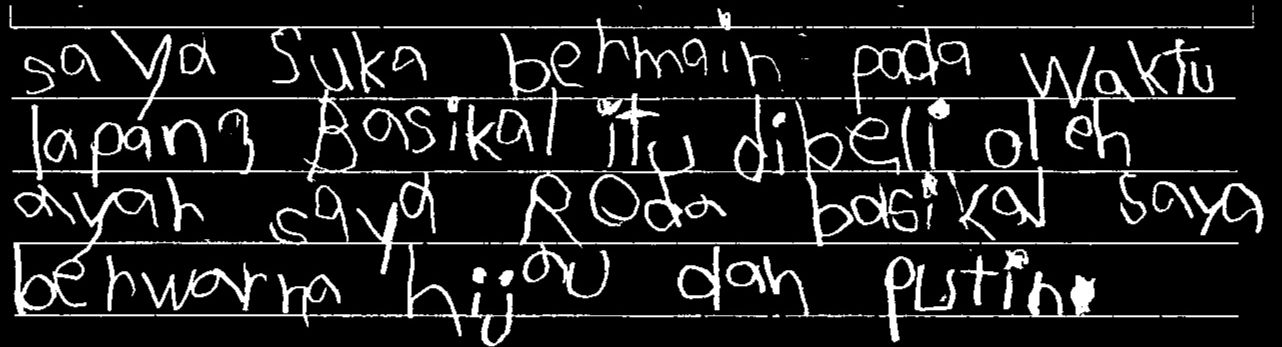 saya Suka bermain pada Waktu
lapang Basikal itu dibeli oleh
ayah saya ROda basikal saya
berwarna hijau dan putih.